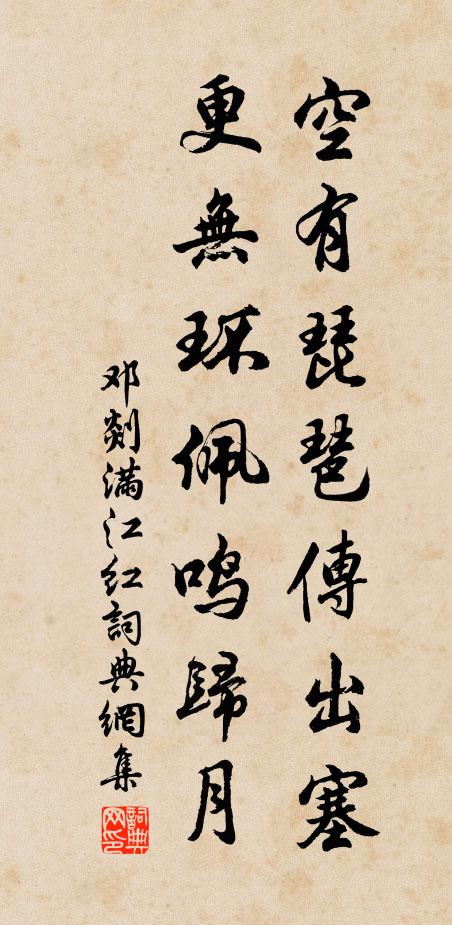 空有琵琶傳出塞
更無环佩鳴歸月
邓剡满江红詞典網集
詞典网印